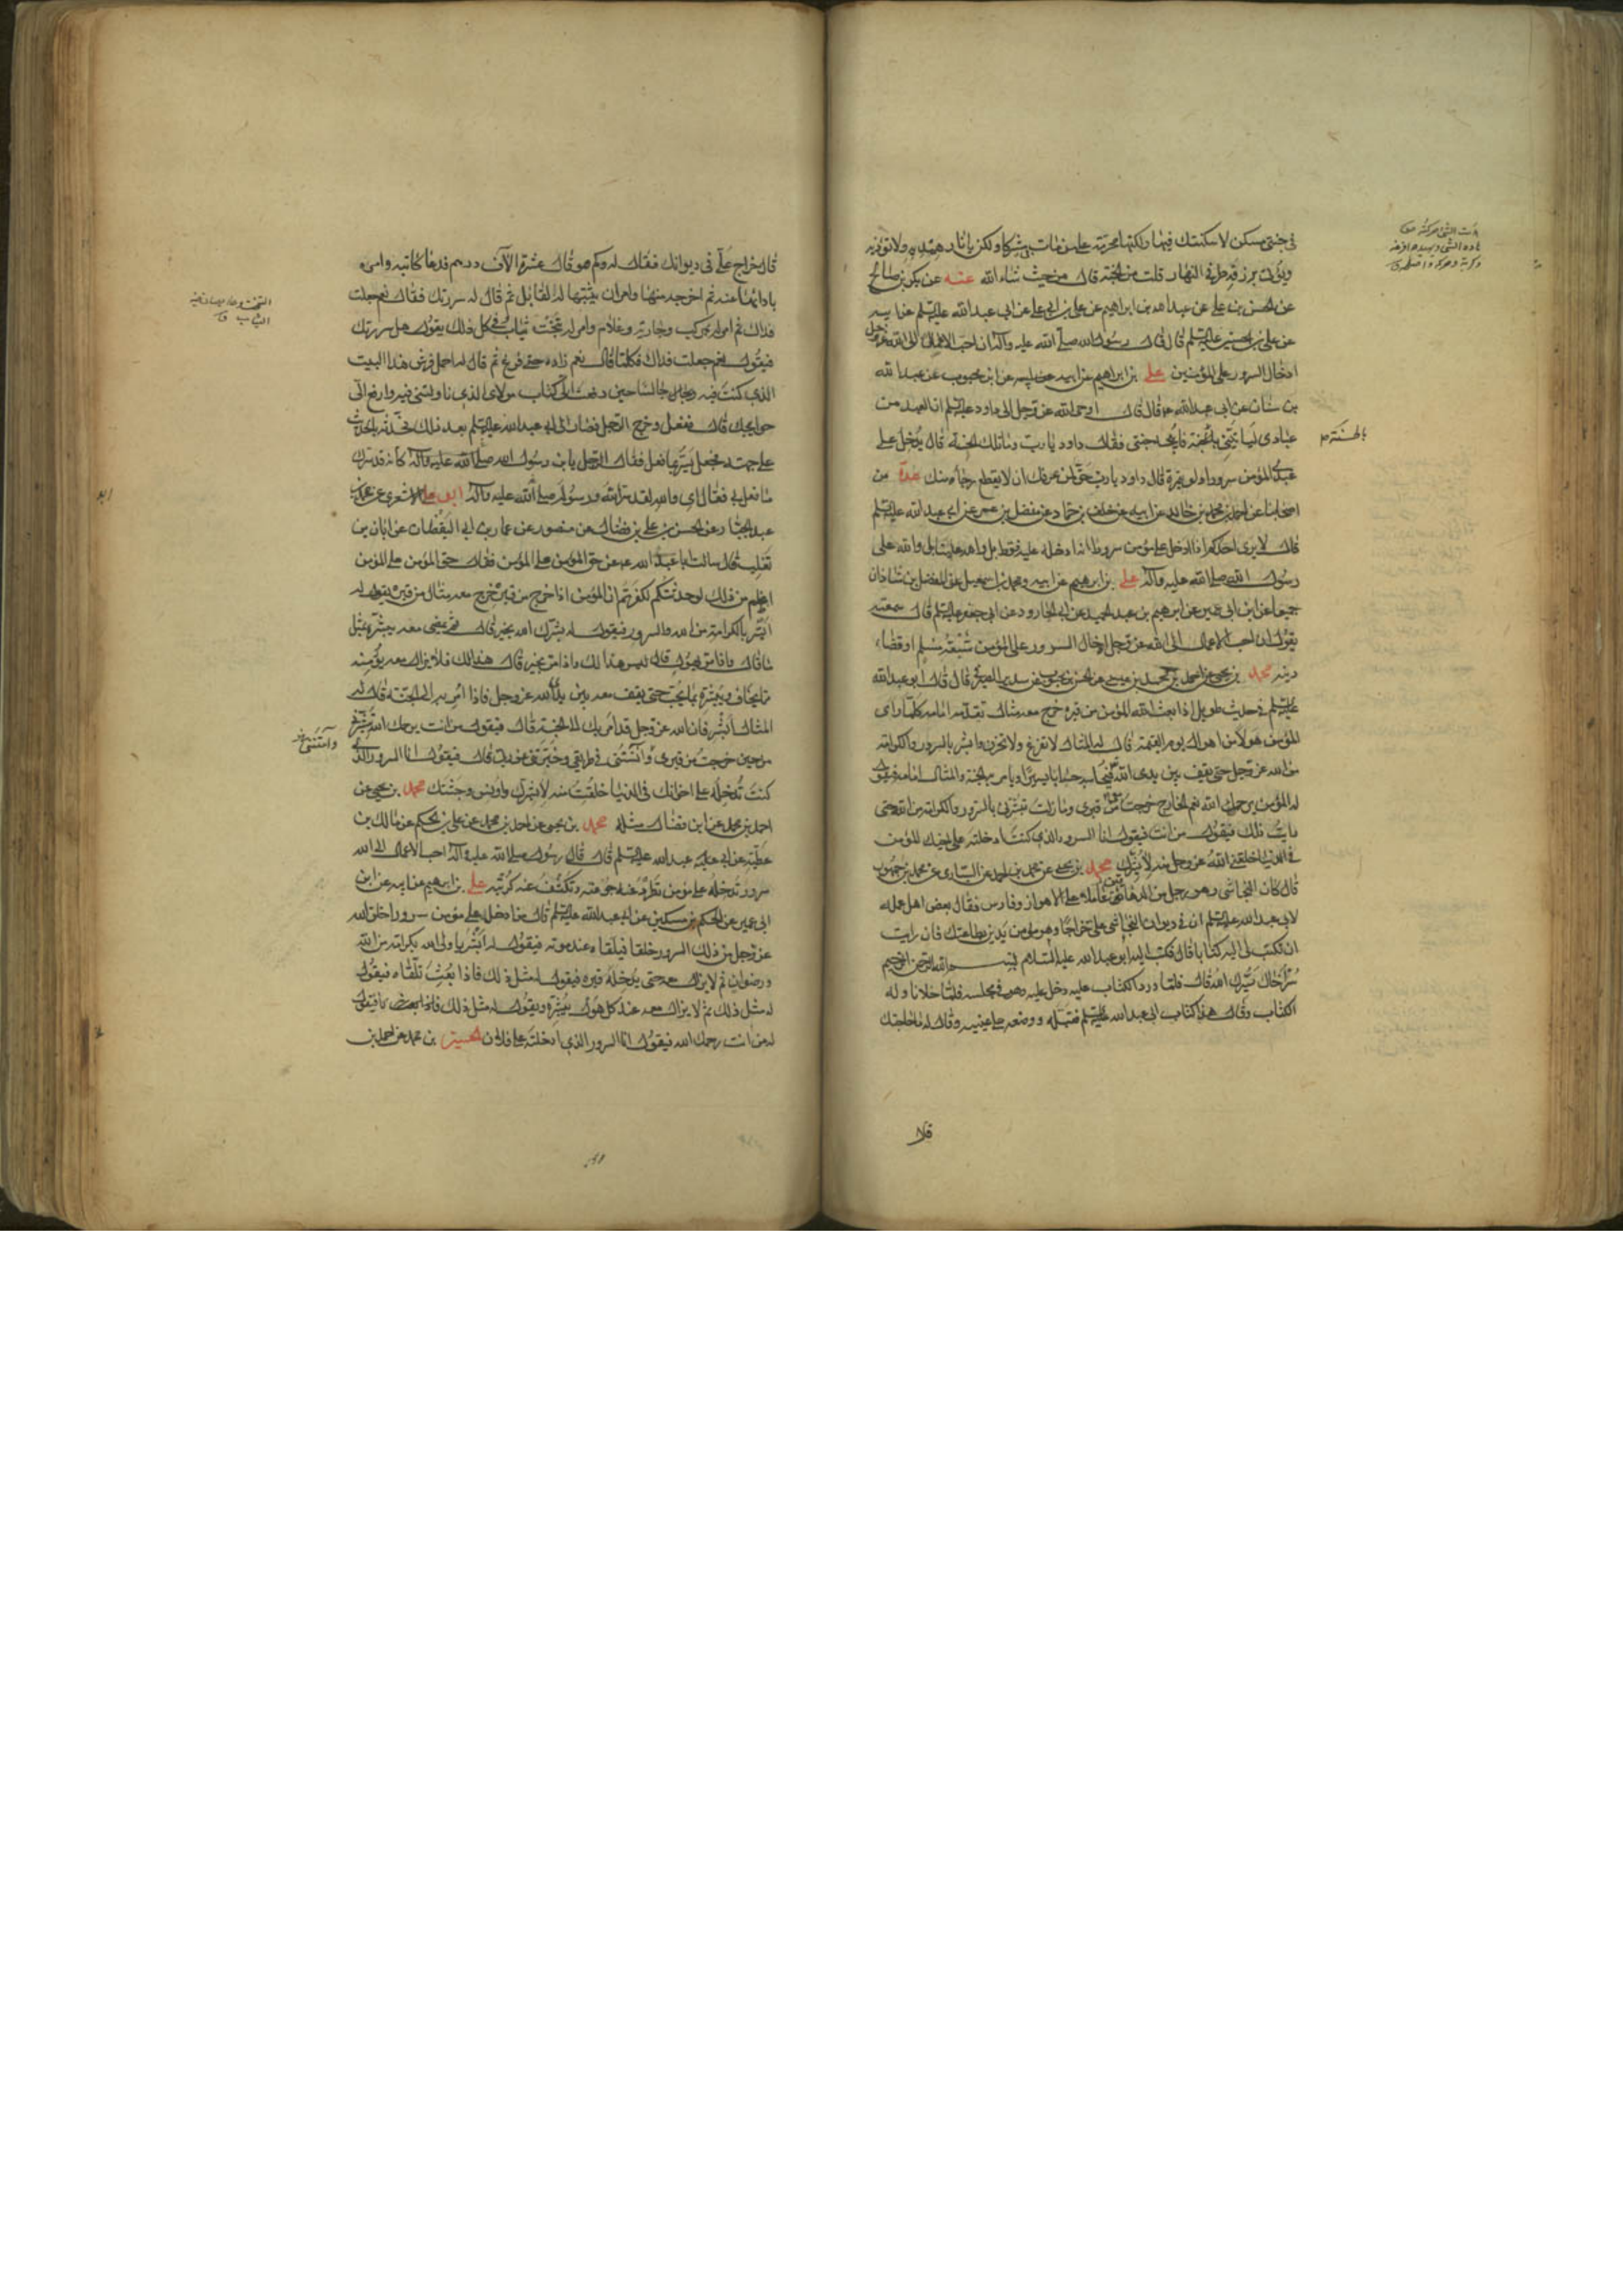 في جنتي مسكن لاسكنتك فيها ولكنها محرمة على من مات بي مشركا ولكن يا نار هيديه ولا تؤذيه
ويؤتى برزقه طرفي النهار قلت من الجنة قال من حيث شاء الله عنه عن بكر بن صالح
عن الحسن بن علي عن عبد الله بن ابراهيم عن علي بن ابي علي عن ابي عبد الله عليه السلم عن ابيه
عن علي بن الحسين عليه السلم قال قال رسول الله صلى الله عليه وآله ان احب الاعمال الى الله عز وجل
ادخال السرور على المؤمنين علي بن ابراهيم عن ابيه عن ابن محبوب عن عبد الله
بن سنان عن ابي عبد الله ع قال قال اوحى الله عز وجل الى داود عليه السلم ان العبد من
عبادي ليأتيني بالحسنة فابيحه جنتي فقال داود يا رب وما تلك الحسنة قال يدخل على
عبدي المؤمن سرورا ولو بتمرة قال داود يا رب حق لمن عرفك ان لا يقطع رجاءه منك عدة من
اصحابنا عن احمد بن محمد بن خالد عن ابيه عن خلف بن حماد عن مفضل بن عمر عن ابي عبد الله عليه السلم
قال لا يرى احدكم اذا ادخل على مؤمن سرورا انه ادخله عليه فقط بل والله علينا بل والله على
رسول الله صلى الله عليه وآله علي بن ابرهيم عن ابيه ومحمد بن اسمعيل عن الفضل بن شاذان
جميعا عن ابن ابي عمير عن ابرهيم بن عبد الحميد عن ابي الجارود عن ابي جعفر عليه السلم قال سمعته
يقول ان احب الاعمال الى الله عز وجل ادخال السرور على المؤمن شبعة مسلم او قضاء
دينه محمد بن يحيى عن احمد بن محمد بن عيسى عن الحسن بن محبوب عن سدير الصيرفي قال قال ابو عبد الله
عليه السلم في حديث طويل اذا بعث الله المؤمن من قبره خرج معه مثال تقدمه امامه كلما رأى
المؤمن هولا من اهوال يوم القيمة قال له المثال لا تفزع ولا تحزن وابشر بالسرور والكرامة
من الله عز وجل حتى يقف بين يدي الله فيحاسبه حسابا يسيرا ويامر به الى الجنة والمثال امامه فيقول
له المؤمن يرحمك الله نعم الخارج خرجت معي من قبري وما زلت تبشرني بالسرور والكرامة من الله حتى
رأيت ذلك فيقول من انت فيقول انا السرور الذي كنت ادخلته على اخيك المؤمن
في الدنيا خلقني الله عز وجل منه لابشرك محمد بن يحيى عن محمد بن احمد عن السياري عن محمد بن جمهور
قال كان النجاشي وهو رجل من الدهاقين عاملا على الاهواز وفارس فقال بعض اهل عمله
لابي عبد الله عليه السلم ان في ديوان النجاشي علي خراجا وهو مؤمن يدين بطاعتك فان رايت
ان تكتب لي اليه كتابا قال فكتب اليه ابو عبد الله عليه السلام بسم الله الرحمن الرحيم
سر اخاك يسرك الله قال فلما ورد الكتاب عليه دخل عليه وهو في مجلسه فلما خلا ناوله
الكتاب وقال هذا كتاب ابي عبد الله عليه السلم فقبله ووضعه على عينيه وقال له ما حاجتك
بالحسنة م
قال
قال خراج علي في ديوانك فقال له وكم هو قال عشرة الآف درهم فدعا كاتبه وامره
بادائها عنه ثم اخرجه منها وامر ان يثبتها له لقابل ثم قال له سررتك فقال نعم جعلت
فداك ثم امر له بمركب وجارية وغلام وامر له بتخت ثياب في كل ذلك يقول هل سررتك
فيقول نعم جعلت فداك فكلما قال نعم زاده حتى فرغ ثم قال له احمل فرش هذا البيت
الذي كنت فيه جالسا حين دفعت الي كتاب مولاي الذي ناولتني فيه وارفع الي
حوايجك قال ففعل وخرج الرجل فصار الى ابي عبد الله عليه السلم بعد ذلك فحدثه بالحديث
على جهته فجعل يسر بما فعل فقال الرجل يا بن رسول الله صلى الله عليه وآله كانه قد سرك
ما فعل بي فقال اي والله لقد سر الله ورسوله صلى الله عليه وآله ابو علي الاشعري عن محمد بن
عبد الجبار عن الحسن بن علي بن فضال عن منصور عن عمار بن ابي اليقظان عن ابان بن
تغلب قال سالت ابا عبد الله ع عن حق المؤمن على المؤمن فقال حق المؤمن على المؤمن
اعظم من ذلك لو حدثتكم لكفرتم ان المؤمن اذا خرج من قبره خرج معه مثال من قبره يقول له
ابشر بالكرامة من الله والسرور فيقول له بشرك الله بخير قال ثم يمضي معه يبشره بمثل
ما قال واذا مر بهول قال ليس هذا لك واذا مر بخير قال هذا لك فلا يزال معه يؤمنه
مما يخاف ويبشره بما يحب حتى يقف معه بين يدي الله عز وجل فاذا امر به الى الجنة قال له
المثال ابشر فان الله عز وجل قد امر بك الى الجنة قال فيقول من انت يرحمك الله تبشرني
من حين خرجت من قبري وآنستني في طريقي وخبرتني عن ربي قال فيقول انا السرور الذي
كنت تدخله على اخوانك في الدنيا خلقت منه لابشرك واونس وحشتك محمد بن يحيى عن
احمد بن محمد عن ابن فضال مثله محمد بن يحيى عن احمد بن محمد عن علي بن الحكم عن مالك بن
عطية عن ابي عبد الله عليه السلم قال قال رسول الله صلى الله عليه وآله احب الاعمال الى الله
سرور تدخله على مؤمن تطرد عنه جوعته وتكشف عنه كربته علي بن ابرهيم عن ابيه عن ابن
ابي عمير عن الحكم بن مسكين عن ابي عبد الله عليه السلم قال من ادخل على مؤمن سرورا خلق الله
عز وجل من ذلك السرور خلقا فيلقاه عند موته فيقول له ابشر يا ولي الله بكرامة من الله
ورضوان ثم لا يزال معه حتى يدخله قبره فيقول له مثل ذلك فاذا بعث تلقاه فيقول
له مثل ذلك ثم لا يزال معه عند كل هول يبشره ويقول له مثل ذلك فيقول
له من انت رحمك الله فيقول انا السرور الذي ادخلته على فلان الحسين بن محمد عن احمد بن
وآنستني